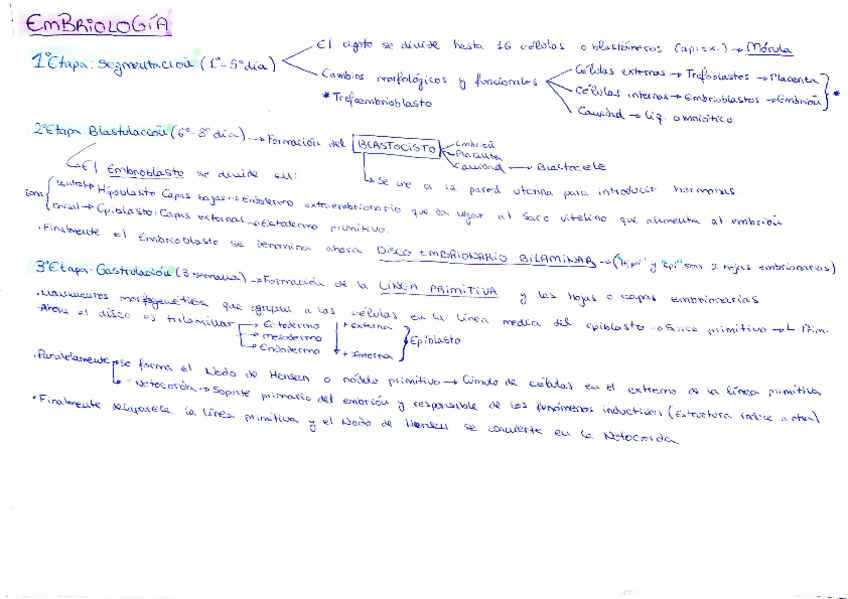 EMBRIOLOGÍA
1ªEtapa: Segmentación (1º-5ºdía)
El cigoto se divide hasta 16 células o blastómeros (aprox.) → Mórula
Cambios morfológicos y funcionales
Células externas → Trofoblastos → Placenta
Células internas → Embrioblastos → Embrión
Cavidad → Líq. amniótico
*
* Trofoembrioblasto
2ªEtapa: Blastulación (6º-8ºdía) → Formación del BLASTOCISTO
Embrión
Placenta
Cavidad → Blastocele
Se une a la pared uterina para introducir hormonas
El Embrioblasto se divide en:
zona
ventral → Hipoblasto: Capas bajas → Endodermo extraembrionario que da lugar al Saco vitelino que alimenta al embrión
→ Epiblasto: Capas externas → Ectodermo primitivo.
· Finalmente el Embrioblasto se denomina ahora DISCO EMBRIONARIO BILAMINAR → ("Hipi" y "Epi" son 2 hojas embrionarias)
3ªEtapa: Gastrulación (3 semana) → Formación de la LÍNEA PRIMITIVA y las hojas o capas embrionarias
· Movimientos morfogenéticos que agrupan a las células en la línea media del epiblasto → Surco primitivo → L Prim.
· Ahora el disco es trilaminar
Ectodermo
Mesodermo
Endodermo
+ externa
+ interna
Epiblasto
· Paralelamente se forma el Nodo de Hensen o nódulo primitivo → Cúmulo de células en el extremo de la línea primitiva
"Notocorda → Soporte primario del embrión y responsable de los fenómenos inductivos (Estructura induce a otra)
· Finalmente desaparece la línea primitiva y el Nodo de Hensen se convierte en la Notocorda.